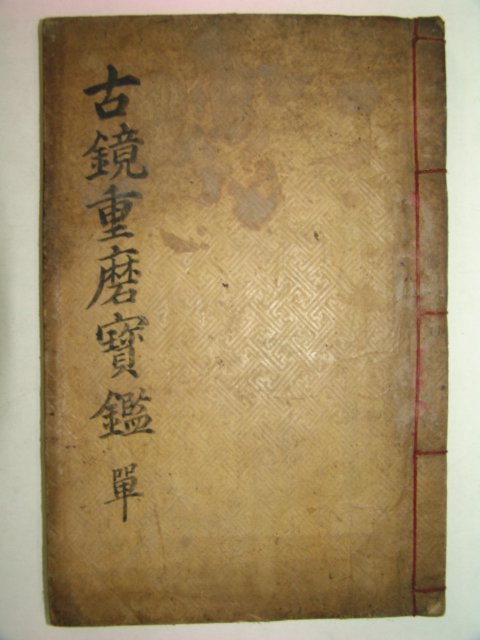 古鏡重磨寳鑑 單